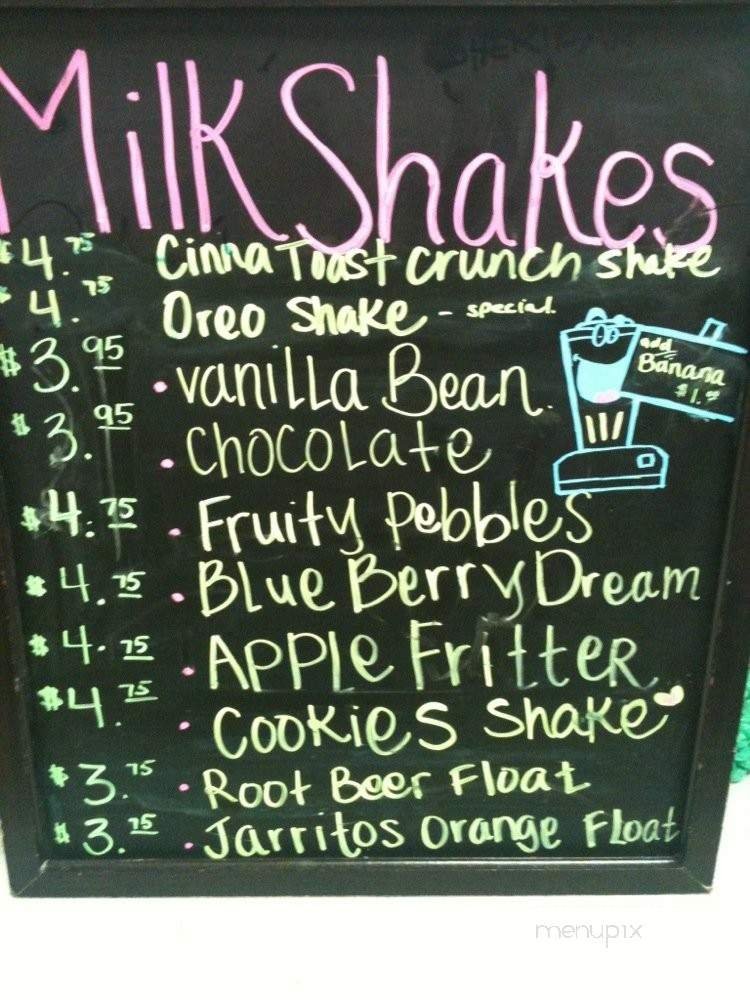 MilkShakes
$4.75 Cinna Toast crunch shake
$4.75 Oreo Shake - special.
$3.95 • vanilla Bean
$3.95 • Chocolate
add Banana
$4.75 • Fruity Pebbles
$4.75 • Blue Berry Dream
$4.75 • Apple Fritter
$4.75 • Cookies Shake
$3.75 • Root Beer Float
$3.75 • Jarritos Orange Float
menupix